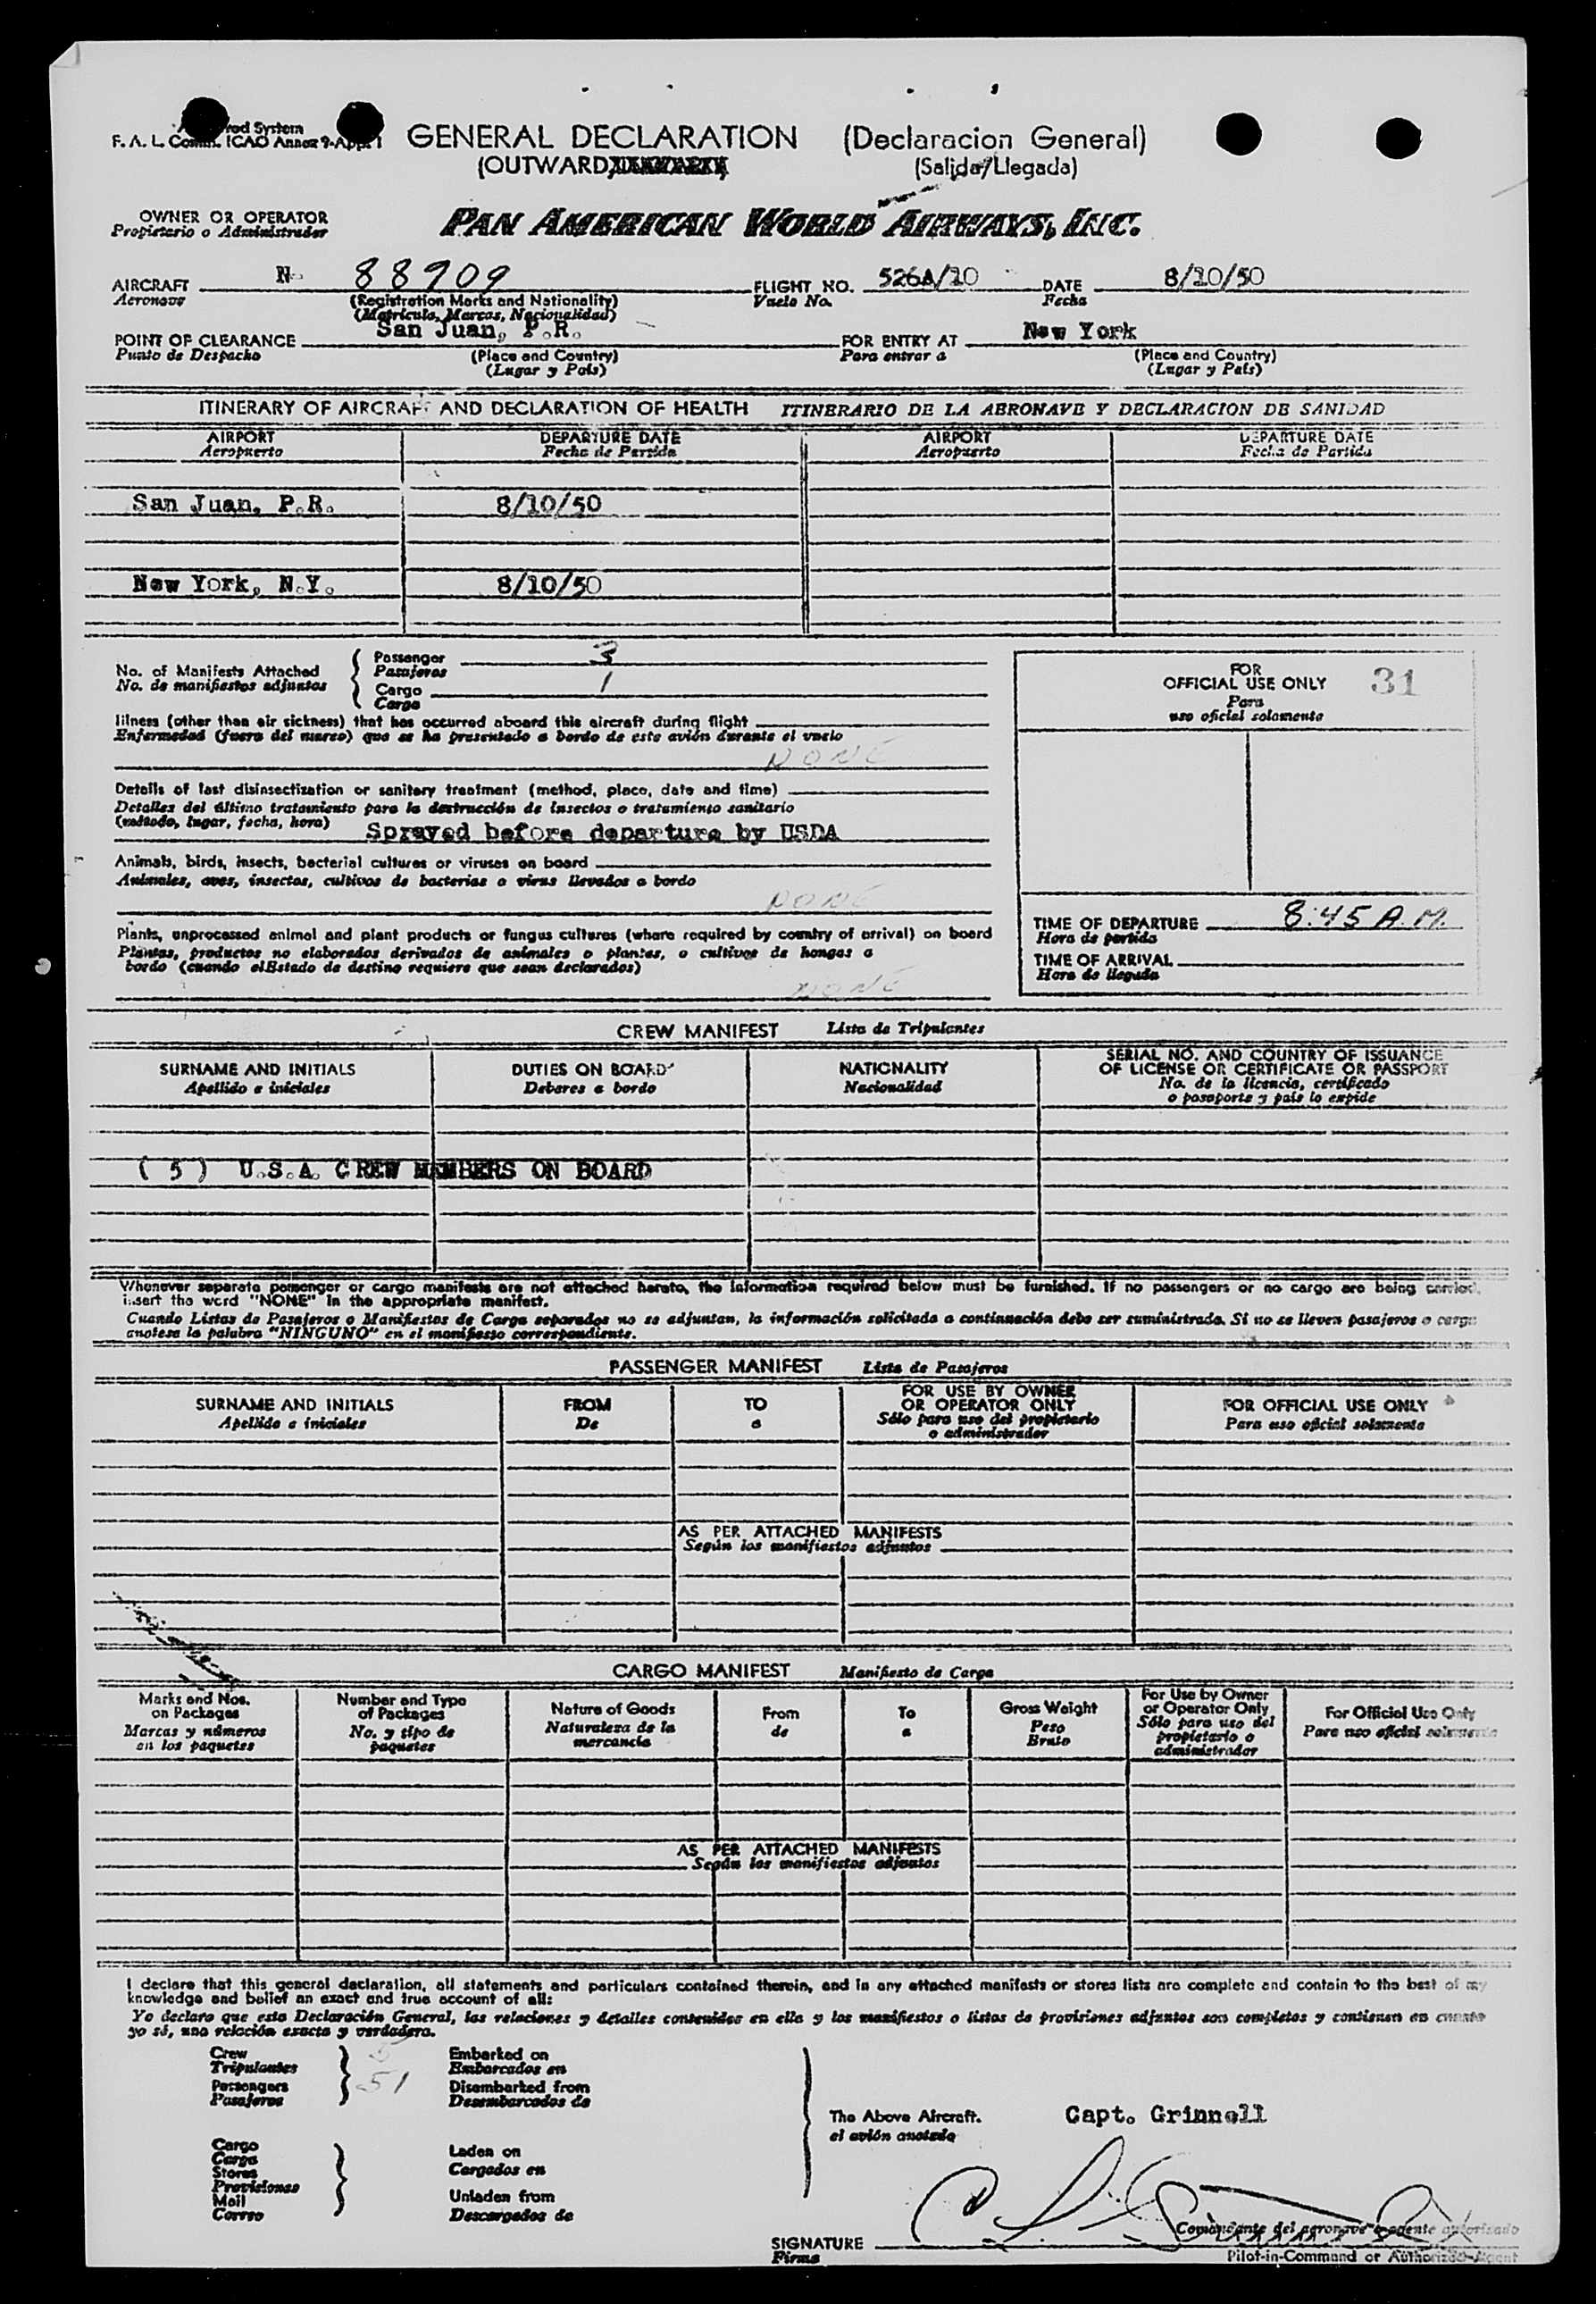 F. A. L. Comm. ICAO Annex 9-App. 1
GENERAL DECLARATION (Declaracion General)
(OUTWARD (Salida/Llegada)
OWNER OR OPERATOR
Propietario o Administrador
PAN AMERICAN WORLD AIRWAYS, INC.
AIRCRAFT N- 88909 FLIGHT NO. 526A/10 DATE 8/10/50
Aeronave (Registration Marks and Nationality) Vuelo No. Fecha
(Matricula, Marcas, Nacionalidad)
POINT OF CLEARANCE San Juan, P.R. FOR ENTRY AT New York
Punto de Despacho (Place and Country) Para entrar a (Place and Country)
(Lugar y País) (Lugar y País)
ITINERARY OF AIRCRAFT AND DECLARATION OF HEALTH ITINERARIO DE LA AERONAVE Y DECLARACION DE SANIDAD
AIRPORT DEPARTURE DATE AIRPORT DEPARTURE DATE
Aeropuerto Fecha de Partida Aeropuerto Fecha de Partida
San Juan, P.R. 8/10/50
New York, N.Y. 8/10/50
No. of Manifests Attached Passenger 3
No. de manifiestos adjuntos Pasajeros
Cargo 1
Carga
Illness (other than air sickness) that has occurred aboard this aircraft during flight
Enfermedad (fuera del mareo) que se ha presentado a bordo de este avión durante el vuelo
NONE
Details of last disinsectization or sanitary treatment (method, place, date and time)
Detalles del último tratamiento para la destrucción de insectos o tratamiento sanitario
(método, lugar, fecha, hora) Sprayed before departure by USDA
Animals, birds, insects, bacterial cultures or viruses on board
Animales, aves, insectos, cultivos de bacterias o virus llevados a bordo
NONE
Plants, unprocessed animal and plant products or fungus cultures (where required by country of arrival) on board
Plantas, productos no elaborados derivados de animales o plantas, o cultivos de hongos a
bordo (cuando elEstado de destino requiere que sean declarados)
NONE
FOR
OFFICIAL USE ONLY 31
Para
uso oficial solamente
TIME OF DEPARTURE 8:45 A.M.
Hora de partida
TIME OF ARRIVAL
Hora de llegada
CREW MANIFEST Lista de Tripulantes
SURNAME AND INITIALS DUTIES ON BOARD NATIONALITY SERIAL NO. AND COUNTRY OF ISSUANCE
OF LICENSE OR CERTIFICATE OR PASSPORT
Apellido e iniciales Deberes a bordo Nacionalidad No. de la licencia, certificado
o pasaporte y país lo expide
( 5 ) U.S.A. CREW MEMBERS ON BOARD
Whenever separate passenger or cargo manifests are not attached hereto, the information required below must be furnished. If no passengers or no cargo are being carried,
insert the word "NONE" in the appropriate manifest.
Cuando Listas de Pasajeros o Manifiestos de Carga separados no se adjuntan, la información solicitada a continuación debe ser suministrada. Si no se lleven pasajeros o carga
anotese la palabra "NINGUNO" en el manifiesto correspondiente.
PASSENGER MANIFEST Lista de Pasajeros
SURNAME AND INITIALS FROM TO FOR USE BY OWNER
OR OPERATOR ONLY FOR OFFICIAL USE ONLY
Apellido e iniciales De a Sólo para uso del propietario
o administrador Para uso oficial solamente
AS PER ATTACHED MANIFESTS
Según los manifiestos adjuntos
CARGO MANIFEST Manifiesto de Carga
Marks and Nos.
on Packages
Marcas y números
en los paquetes
Number and Type
of Packages
No. y tipo de
paquetes
Nature of Goods
Naturaleza de la
mercancía
From
de
To
a
Gross Weight
Peso
Bruto
For Use by Owner
or Operator Only
Sólo para uso del
propietario o
administrador
For Official Use Only
Para uso oficial solamente
AS PER ATTACHED MANIFESTS
Según los manifiestos adjuntos
I declare that this general declaration, all statements and particulars contained therein, and in any attached manifests or stores lists are complete and contain to the best of my
knowledge and belief an exact and true account of all:
Yo declaro que esta Declaración General, las relaciones y detalles contenidos en ella y los manifiestos o listas de provisiones adjuntos son completos y contienen en cuanto
yo sé, una relación exacta y verdadera.
Crew 5 Embarked on
Tripulantes Embarcados en
Passengers 51 Disembarked from
Pasajeros Desembarcados de
The Above Aircraft. Capt. Grinnell
el avión anotado
Cargo
Carga
Stores
Provisiones
Mail
Correo
Laden on
Cargados en
Unladen from
Descargados de
Comandante del aeronave o agente autorizado
SIGNATURE
Firma
Pilot-in-Command or Authorized Agent